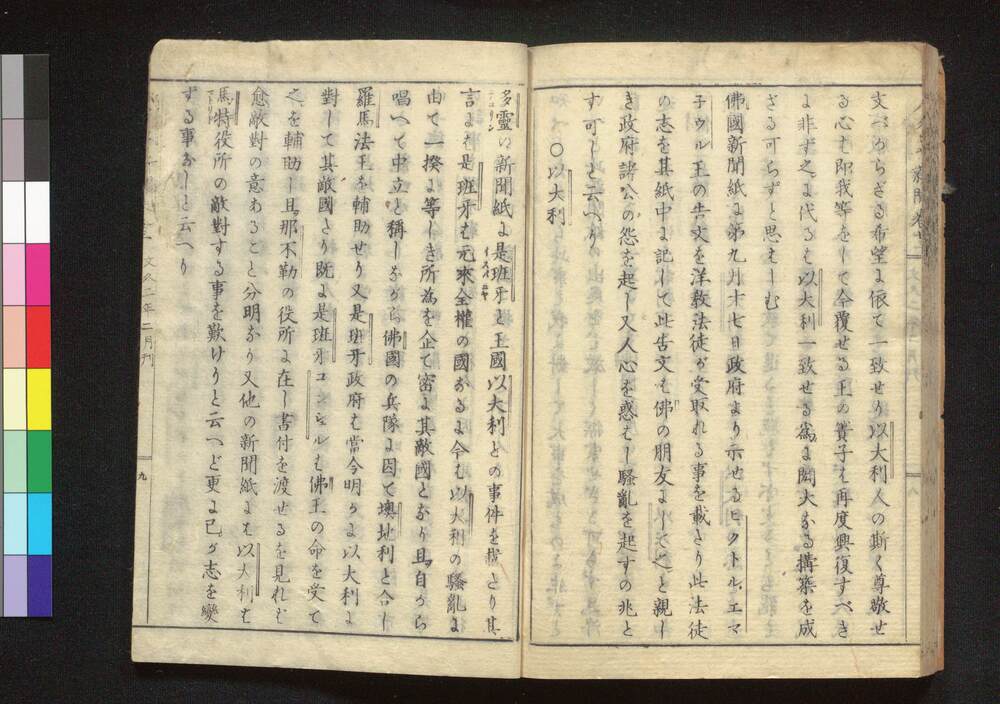 支べからざる希望に依て一致せり以大利人の斯く尊敬せ
る心も即我等をして今覆せる王の貴子も再度興復すべき
に非ず之に代るも以大利一致せる為に閎大なる構築を成
ざる可らずと思はしむ
佛國新聞紙に第九月十七日政府より示せるヒクトル、エマ
子ウル王の告文を洋教法徒が受取れる事を載たり此法徒
の志を其紙中に記して此告文も佛の朋友にして又と親し
き政府諸公の怨を起し又人心を惑はし騒亂を起すの兆と
す可しと云へり
〇以大利
多靈の新聞紙に是班牙と王國以大利との事件を載たり其
言よれ是班牙も元來全權の國なるよ今も以大利の騒亂に
由て一揆に等しき所為を企て密に其敵國となり且自から
唱へて中立と稱しながら佛國の兵隊に因て墺地利と合し
羅馬法王を輔助せり又是班牙政府も當今明かに以大利に
對して其敵國たり既に是班牙コンシュルも佛王の命を受て
之を輔助し且那不勒の役所に在し書付を渡せるを見れも
愈敵對の意あること分明なり又他の新聞紙にも以大利も
馬特役所の敵對する事を歎けりと云へど更に己が志を變
ずる事なしと云へり
文久二年二月刊
九